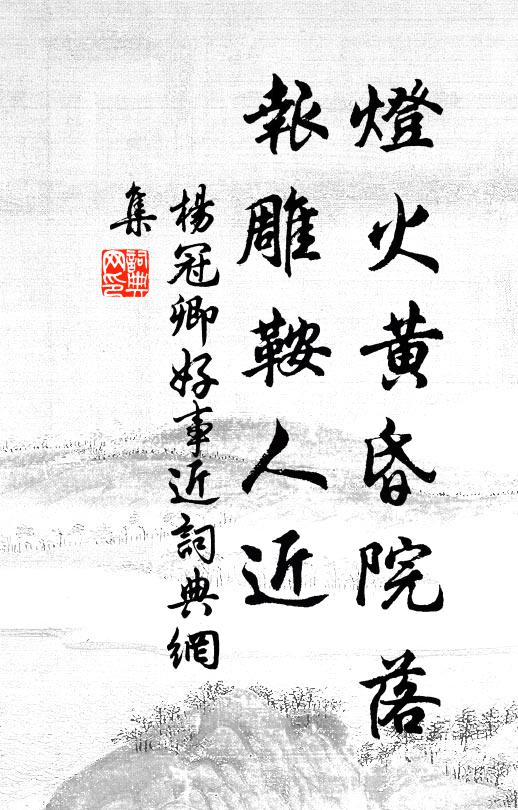 燈火黃昏院落
報雕鞍人近
楊冠卿好事近詞典網
集
詞典
网印